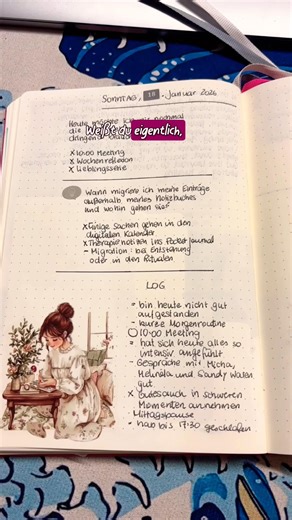 Sonntag, 18. Januar 2026
Heute möchte ich
die
dringend
Weißt du eigentlich,
x 10:00 Meeting
x Wochenreflexion
x Lieblingsserie
Wann migriere ich meine Einträge
außerhalb meines Notizbuches
und wohin gehen sie?
x Einige Sachen gehen in den
digitalen Kalender
x Therapienotizen ins Pocket Journal
- Migration: bei Entstehung
oder in den Ritualen
LOG
- bin heute nicht gut
aufgestanden
- kurze Morgenroutine
10:00 Meeting
= hat sich heute alles so
intensiv angefühlt
- Gespräche mit Micha,
und Sandy waren
gut
x Gutes auch in schweren
Momenten annehmen
- Mittagspause
- hab bis 17:30 geschlafen